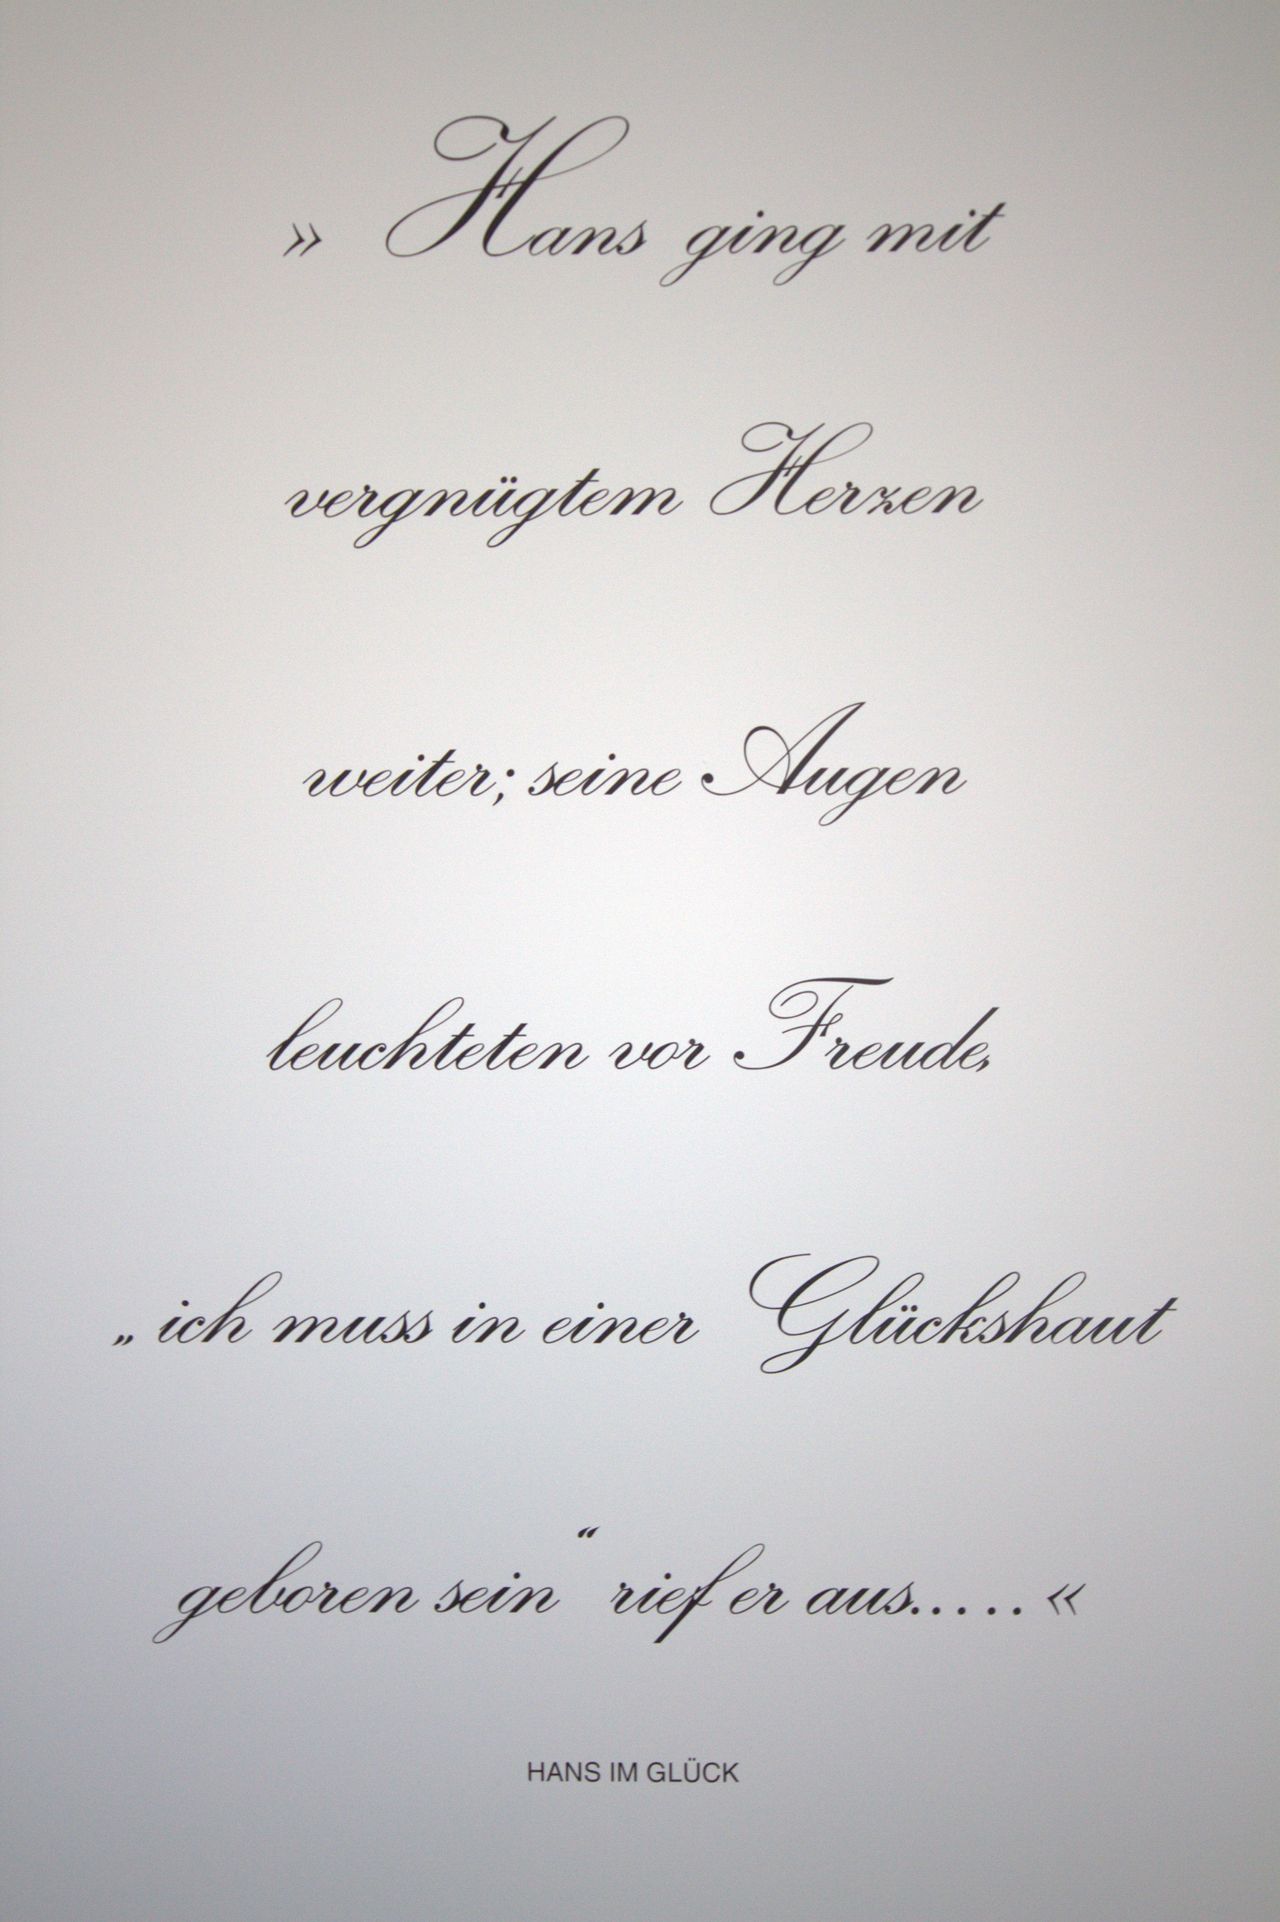 » Hans ging mit
vergnügtem Herzen
weiter; seine Augen
leuchteten vor Freude,
„ ich muss in einer Glückshaut
geboren sein “ rief er aus..... «
HANS IM GLÜCK